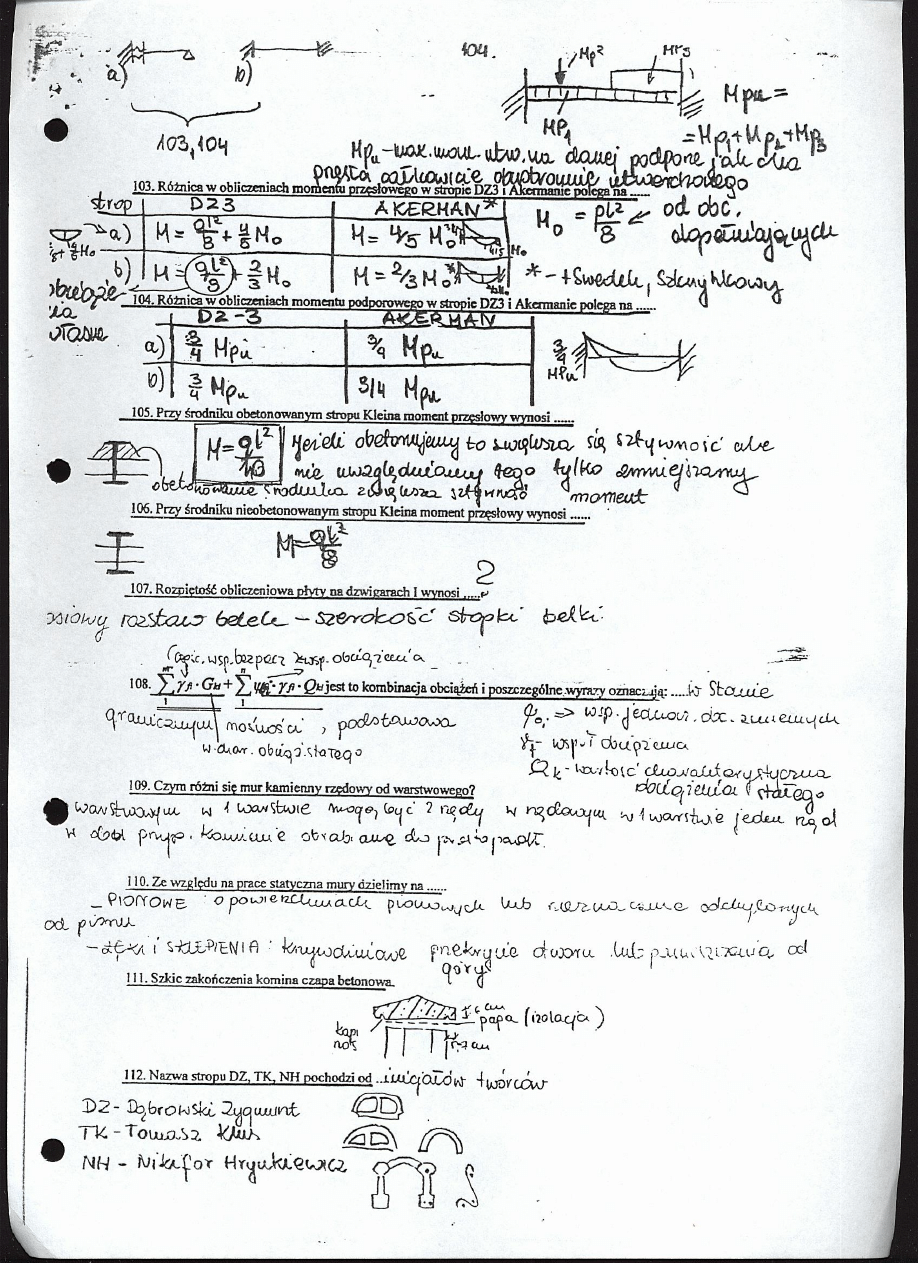 a) b) 104. Mp2 Mp3
MP1 Mpu =
103,104 =Mp1+Mp2+Mp3
Mpu - max. mom. utw. na danej podporze jak dla
pręta całkowicie obustronnie utwierdzonego
103. Różnica w obliczeniach momentu przęsłowego w stropie DZ3 i Akermanie polega na ......
strop DZ3 AKERMAN* M0 = pl²/8 od obc.
a) M = ql²/8 + 4/5 M0 M = 4/5 M0 dopełniających
b) M = ql²/8 + 2/3 M0 M = 2/3 M0 * - + Swedek,
własne
104. Różnica w obliczeniach momentu podporowego w stropie DZ3 i Akermanie polega na ......
DZ-3 AKERMAN
a) 3/4 Mpu 3/4 Mpu 3/4 Mpu
b) 3/4 Mpu 3/4 Mpu
105. Przy środniku obetonowanym stropu Kleina moment przęsłowy wynosi ......
M = ql²/10 Jeżeli obetonujemy to zwiększa się sztywność ale
nie uwzględniamy tego tylko zmniejszamy
obetonowanie środnika zwiększa sztywność moment
106. Przy środniku nieobetonowanym stropu Kleina moment przęsłowy wynosi ......
M = ql²/8
107. Rozpiętość obliczeniowa płyty na dzwigarach I wynosi ......
osiowy rozstaw belek - szerokość stopki belki.
częśc. wsp. bezpiecz. wsp. obciążenia
108. Σ γfi · Gki + Σ ψoi · γfi · Qki jest to kombinacja obciążeń i poszczególne wyrazy oznaczają: .....w Stanie
granicznym nośności, podstawowa ψoi => wsp. jednocz. obc. zmiennych
w. char. obciąż. stałego γf - wsp. obciążenia
Qk - wartość charakterystyczna
obciążenia stałego
109. Czym różni się mur kamienny rzędowy od warstwowego?
w warstwowym w 1 warstwie mogą być 2 rzędy w rzędowym w 1 warstwie jeden rząd
w obu przyp. kamienie obrabiane do
110. Ze względu na prace statyczna mury dzielimy na ......
- PIONOWE : o powierzchniach pionowych lub nieznacznie odchylonych
od pionu
- ŁĘKI i SKLEPIENIA : krzywoliniowe przekrycie otworu lub pomieszczenia od
góry
111. Szkic zakończenia komina czapa betonowa.
papa (izolacja)
kapi
nos
112. Nazwa stropu DZ, TK, NH pochodzi od ...inicjałów twórców
DZ - Dąbrowski Zygmunt
TK - Tomasz Kluz
NH - Nikafor Hryukiewicz